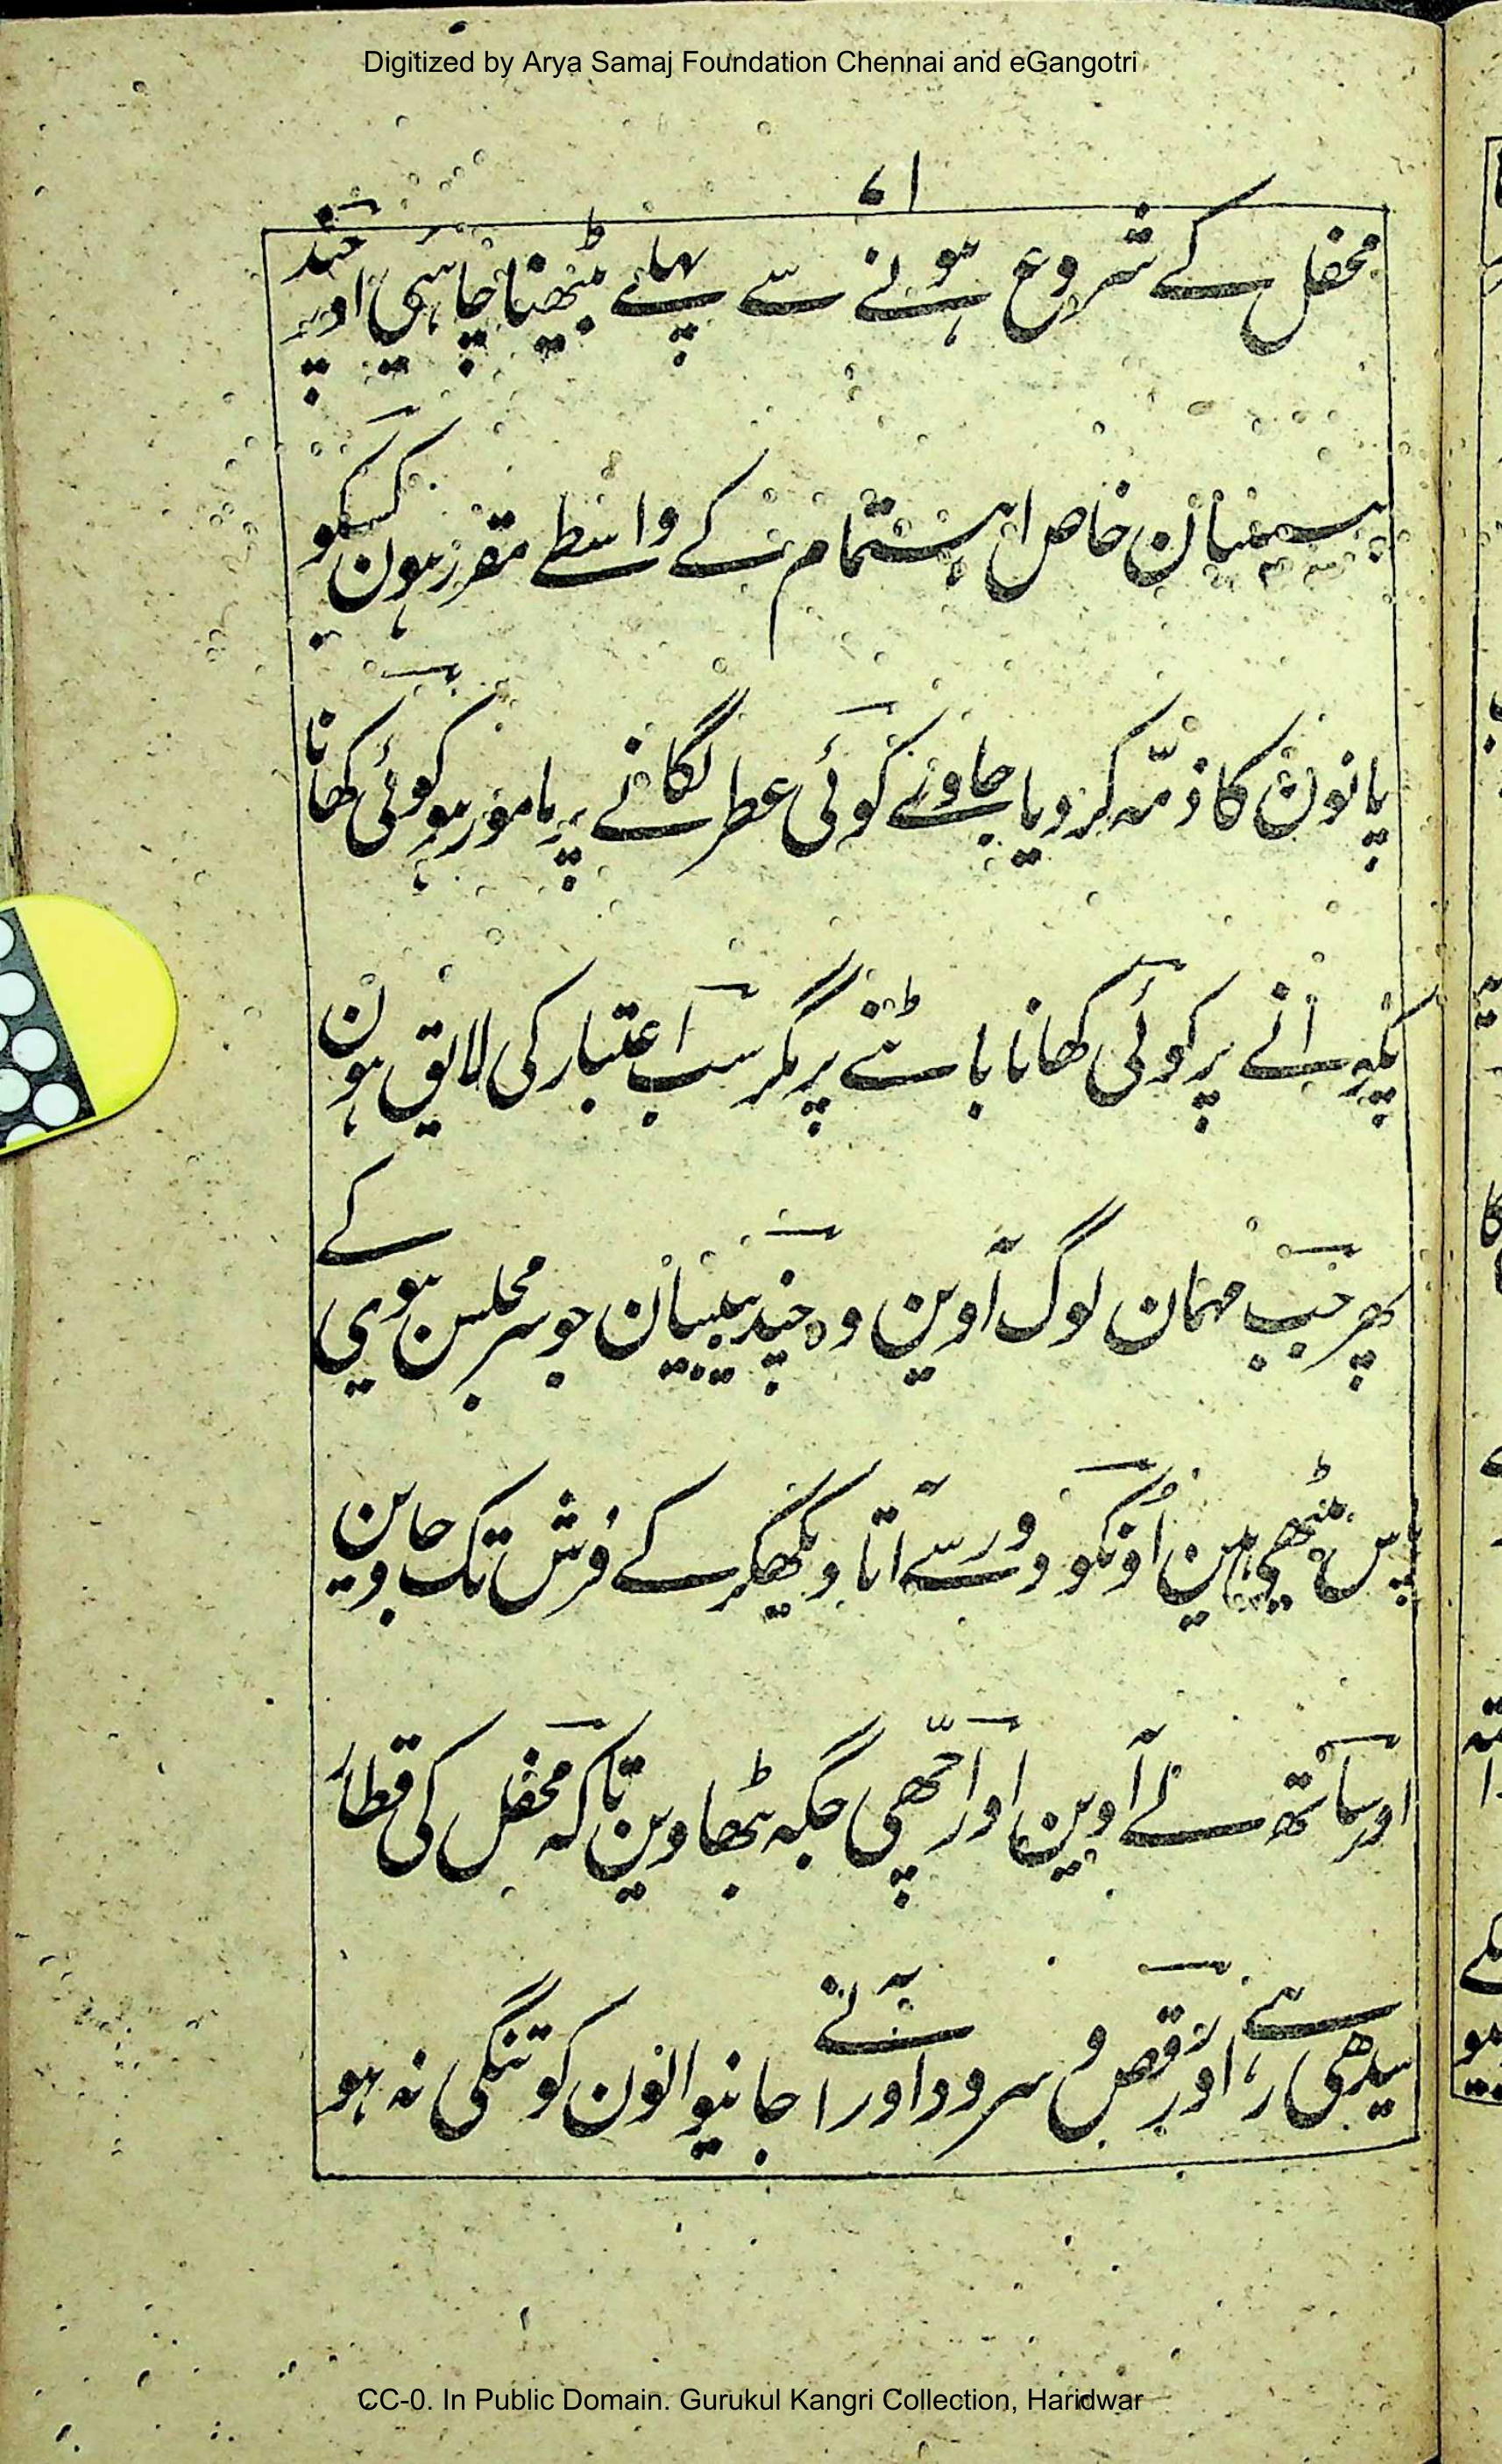 Digitized by Arya Samaj Foundation Chennai and eGangotri
۷۱
محفل کے شروع ہونے سے پہلے بیٹھنا چاہئی اور چند
بیبیان خاص اہتمام کے واسطے مقرر ہون کسیکو
پانون کا ذمّہ کر دیا جاوے کوئی عطر لگانے پر مامور ہو کوئی کھانا
پکوانے پر کوئی کھانا بانٹنے پر مگر سب اعتبار کی لایق ہون
پھر جب مہمان لوگ آوین وہ چند بیبیان جو سر مجلس ہوی کے
پاس بیٹھی ہین اُونکو دور سے آتا دیکھکر کے فرش تک جاوین
اور ساتھ لے آوین اور اچّھی جگہ بٹھاوین تاکہ محفل کی قطار
سیدھی رہے اور رقص و سرود اور آنے جانیوالون کو تنگی نہ ہو
CC-0. In Public Domain. Gurukul Kangri Collection, Haridwar